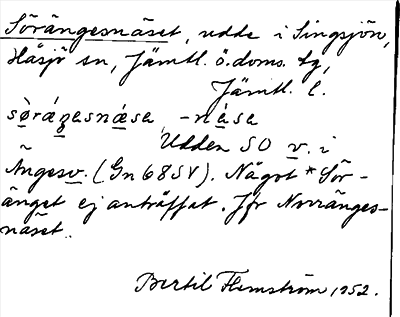 Sörängesnäset, udde i Singsjön,
Häsjö sn, Jämtl. ö. doms. tg,
Jämtl. l.
sö̀ráŋesnæse, -næ̀se
Udden SO v. i
Ängesv. (Gn 68 SV). Något *Sör-
änget ej anträffat. Jfr Norränges-
näset.
Bertil Flemström 1952.